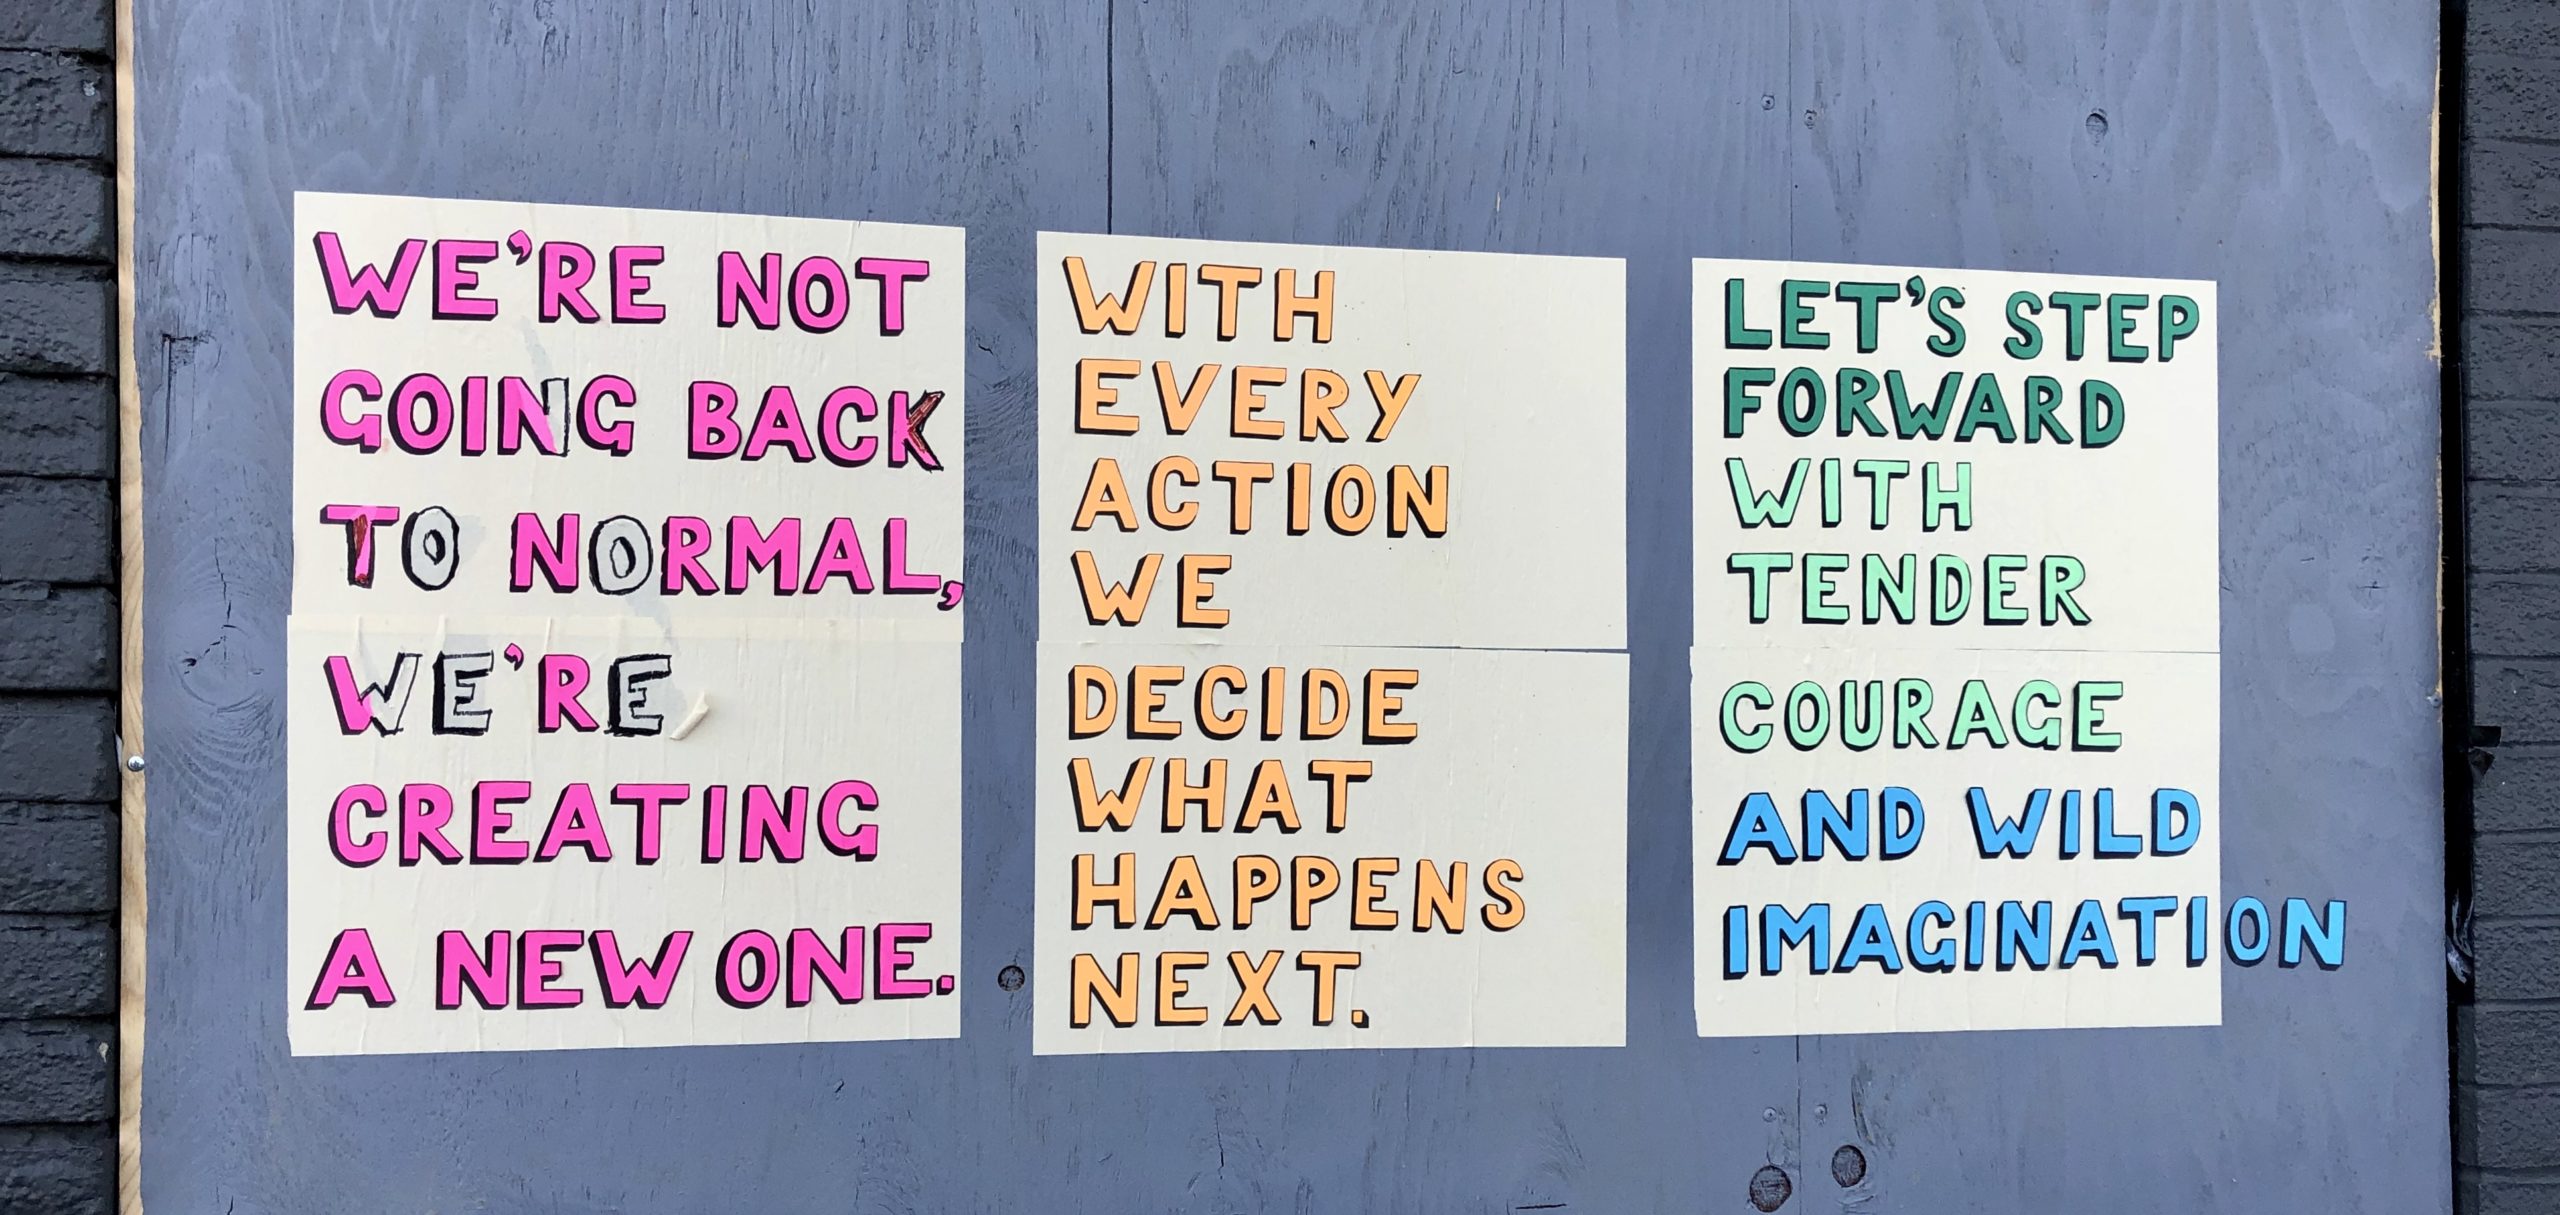 WE'RE NOT
GOING BACK
TO NORMAL,
WE'RE
CREATING
A NEW ONE.
WITH
EVERY
ACTION
WE
DECIDE
WHAT
HAPPENS
NEXT.
LET'S STEP
FORWARD
WITH
TENDER
COURAGE
AND WILD
IMAGINATION